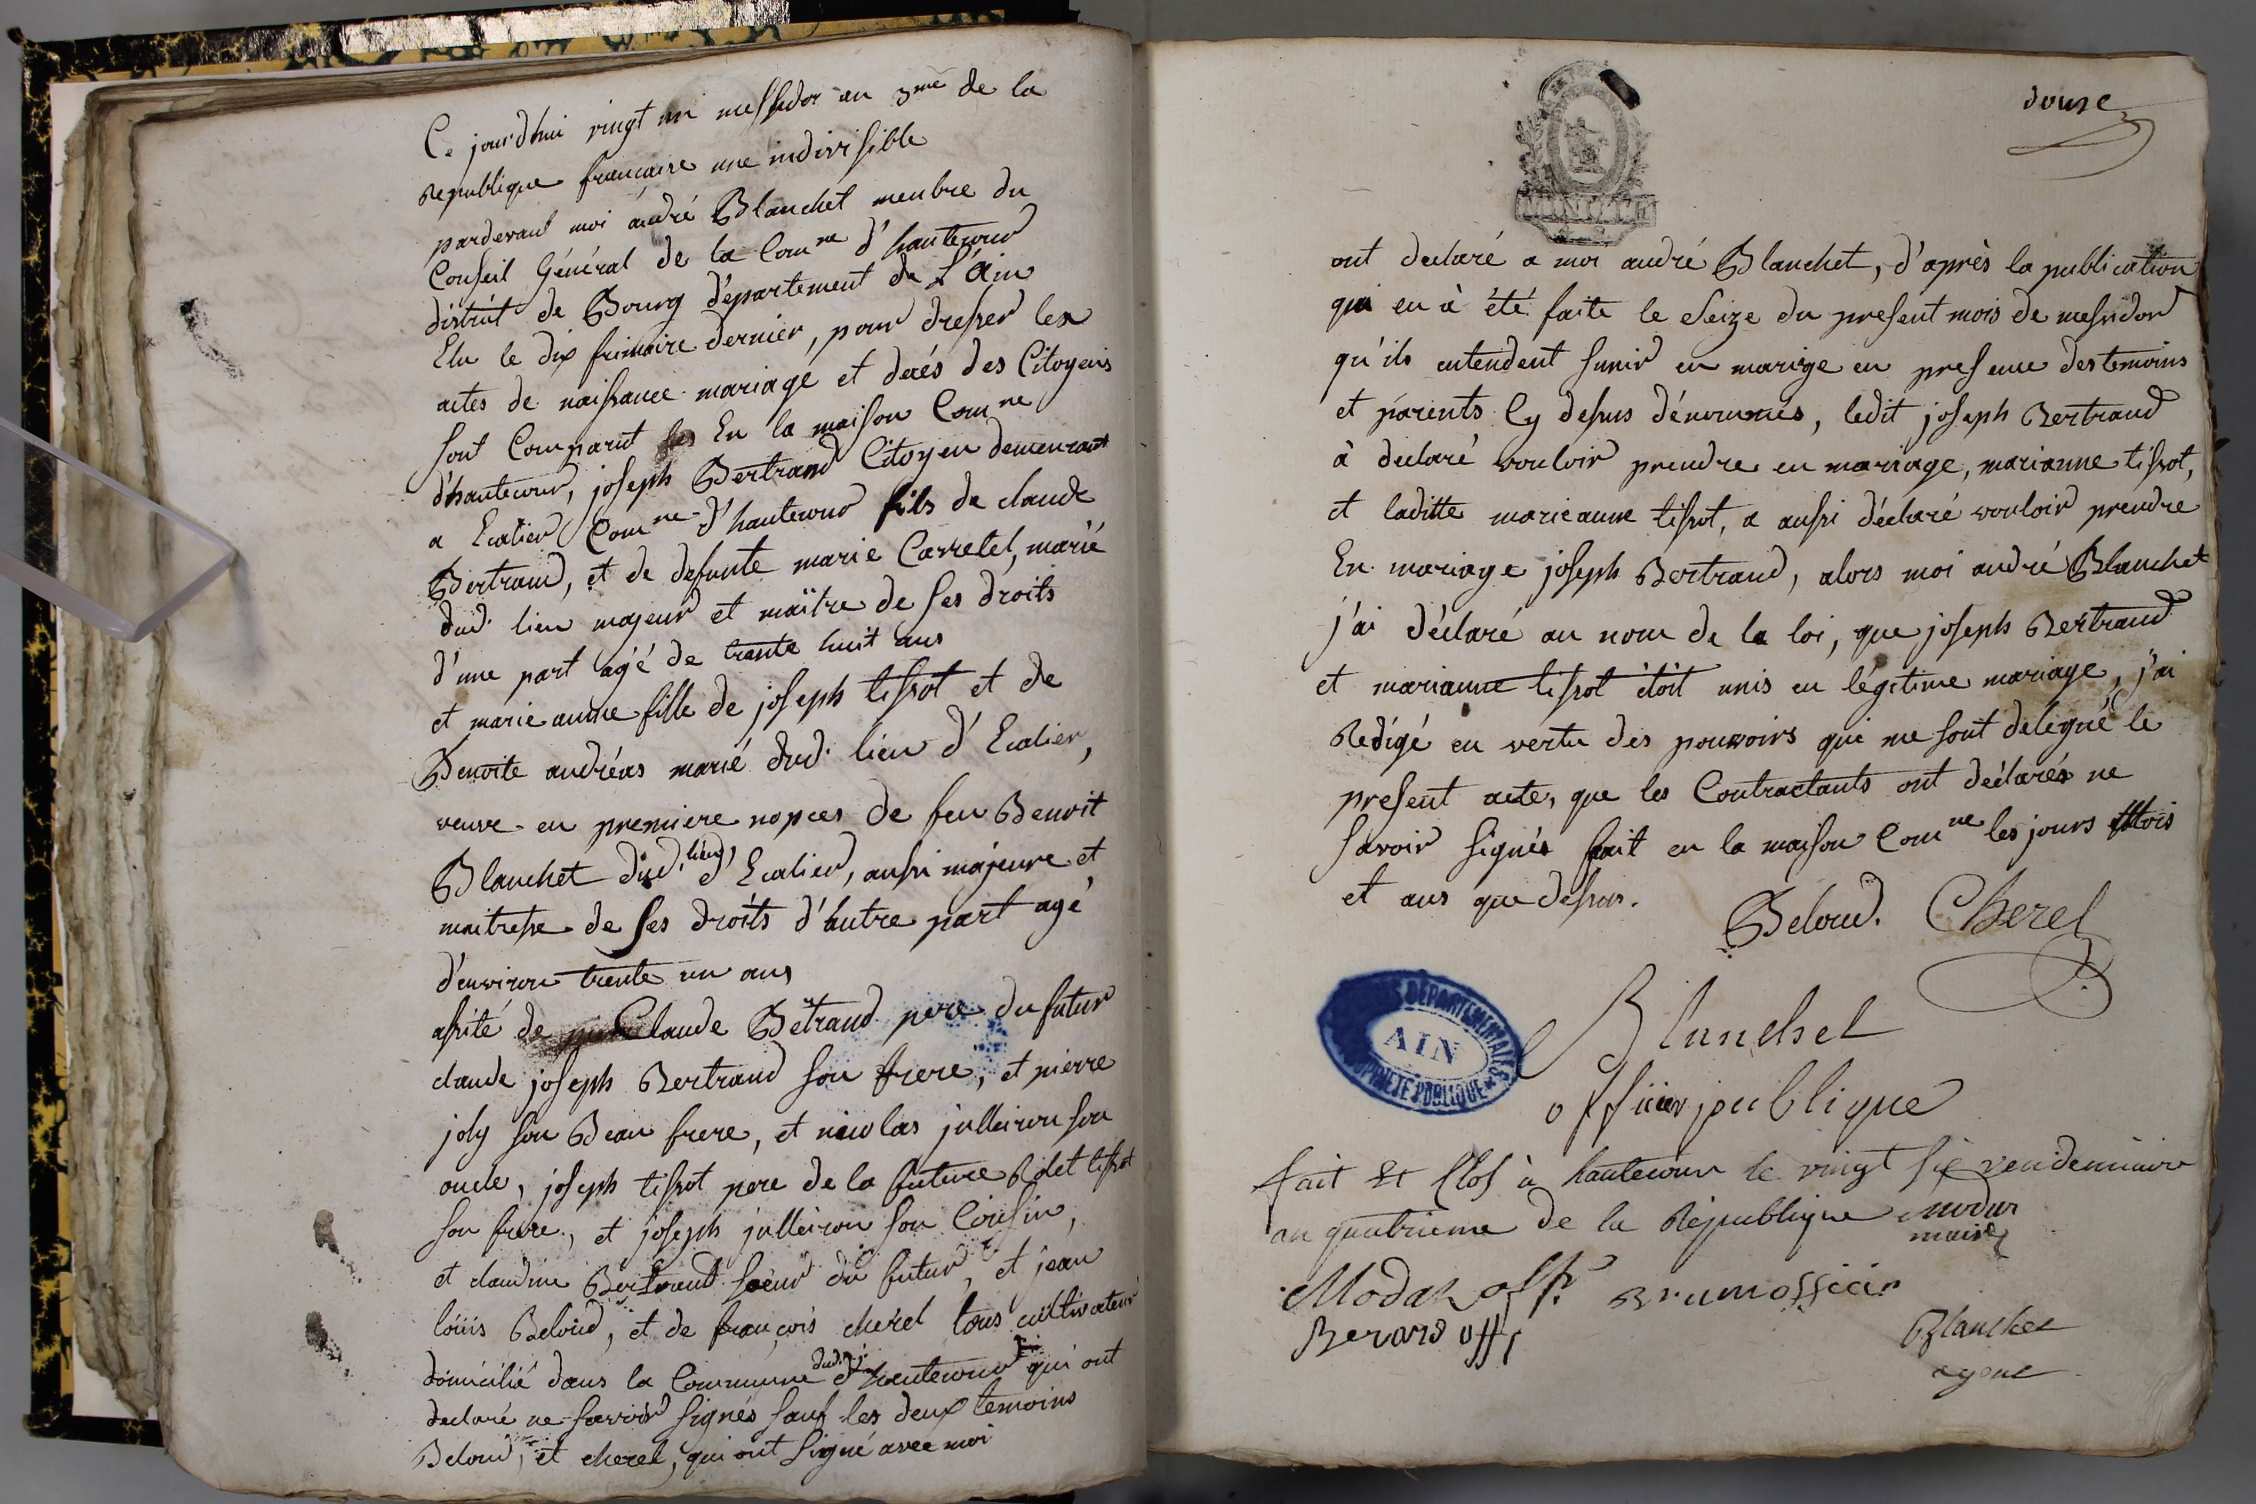 Ce jourd'hui vingt un messidor an 3me de la
Republique francaise une indivisible
pardevant moi andré Blanchet menbre du
Conseil Général de la Comne d'hautecour
distrist de Bourg département de L'Ain
Elu le dix frimaire dernier, pour dresser les
actes de naissance mariage et decés des Citoyens
sont Comparut En la maison Comne
d'hautecour, joseph Bertrand Citoyen demeurant
a Ecalier Comne d'hautecour fils de claude
Bertrand, et de defunte marie Carretel, marié
dud. lieu majeur et maître de ses droits
d'une part agé de trente huit ans
et marie anne fille de joseph tissot et de
Benoite andréas marié dud. lieu d'Ecalier,
veuve en premiere nopces de feu Benoit
Blanchet dud. lieu d'Ecalier, aussi majeure et
maitresse de ses droits d'hutre part agé
d'environ trente un ans
assité de Claude Bétrand pere du futur
claude joseph Bertrand son frere, et pierre
joly son Beau frere, et nicolas julleiron son
oncle, joseph tissot pere de la future Rolet tissot
son frere, et joseph julleiron son Cousin,
et claudine Bertrand soeur du futur, et jean
louis Beloud, et de francois cherel tous cultivateur
domicilié dans la Commune dud. d'hautecour qui ont
declaré ne savoir signés sauf les deux temoins
Beloud, et cherel, qui ont signé avec moi
douze
ont declaré a moi andré Blanchet, d'après la publication
qui en à été faite le seize du present mois de messidor
qu'ils entendent sunir en mariage en presence des temoins
et parints Cy dessus dénommés, ledit joseph Bertrand
à declaré vouloir prendre en mariage, marianne tissot,
et laditte marieanne tissot, a aussi déclaré vouloir prendre
En mariage joseph Bertrand, alors moi andré Blanchet
j'ai déclaré au nom de la loi, que joseph Bertrand
et marianne tissot étoit unis en légitime mariage, j'ai
Redigé en vertu des pouvoirs qui me sont delegué le
present acte, que les Contractants ont déclarés ne
savoir signés fait en la maison Comne les jours mois
et ans que dessus.
Beloud. Cherel
ARCHIVES DÉPARTEMENTALES
AIN
PROPRIÉTÉ PUBLIQUE
Blanchet
officier publique
fait Et Clos à hautecour le vingt six vendemiaire
an quatrieme de la Republique Modas
maire
Modas off. Brunofficier
Berard off
Blanchet
agent